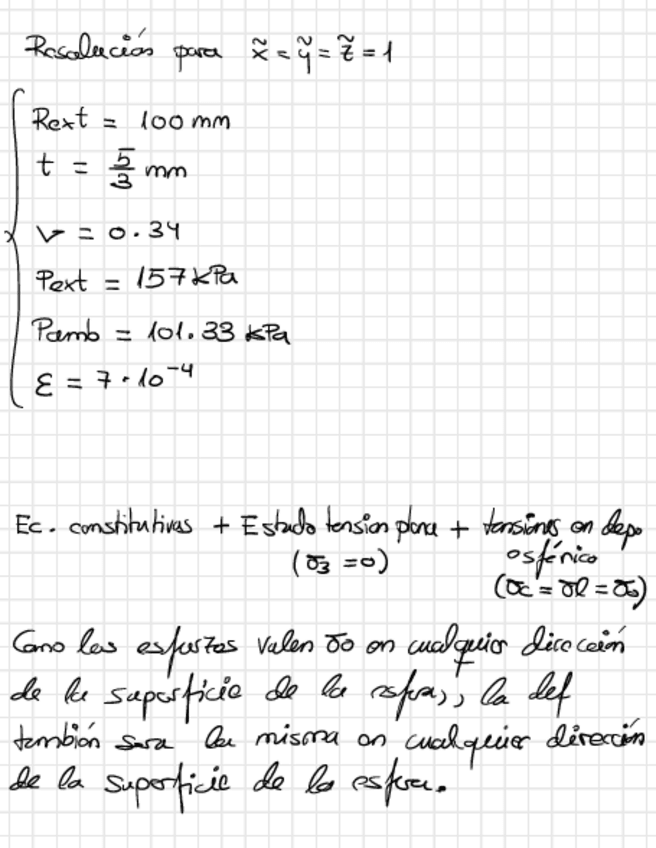 Resolución para x̃ = ỹ = z̃ = 1
Rext = 100 mm
t = 5/3 mm
ν = 0.34
Pext = 157 kPa
Pamb = 101.33 kPa
ε = 7 · 10⁻⁴
Ec. constitutivas + Estado tension plana + tensiones en depo
(σ3 = 0) esférico
(σc = σl = σo)
Como los esfuerzos valen σo en cualquier dirección
de la superficie de la esfera,, la def
también sera la misma en cualquier dirección
de la superficie de la esfera.